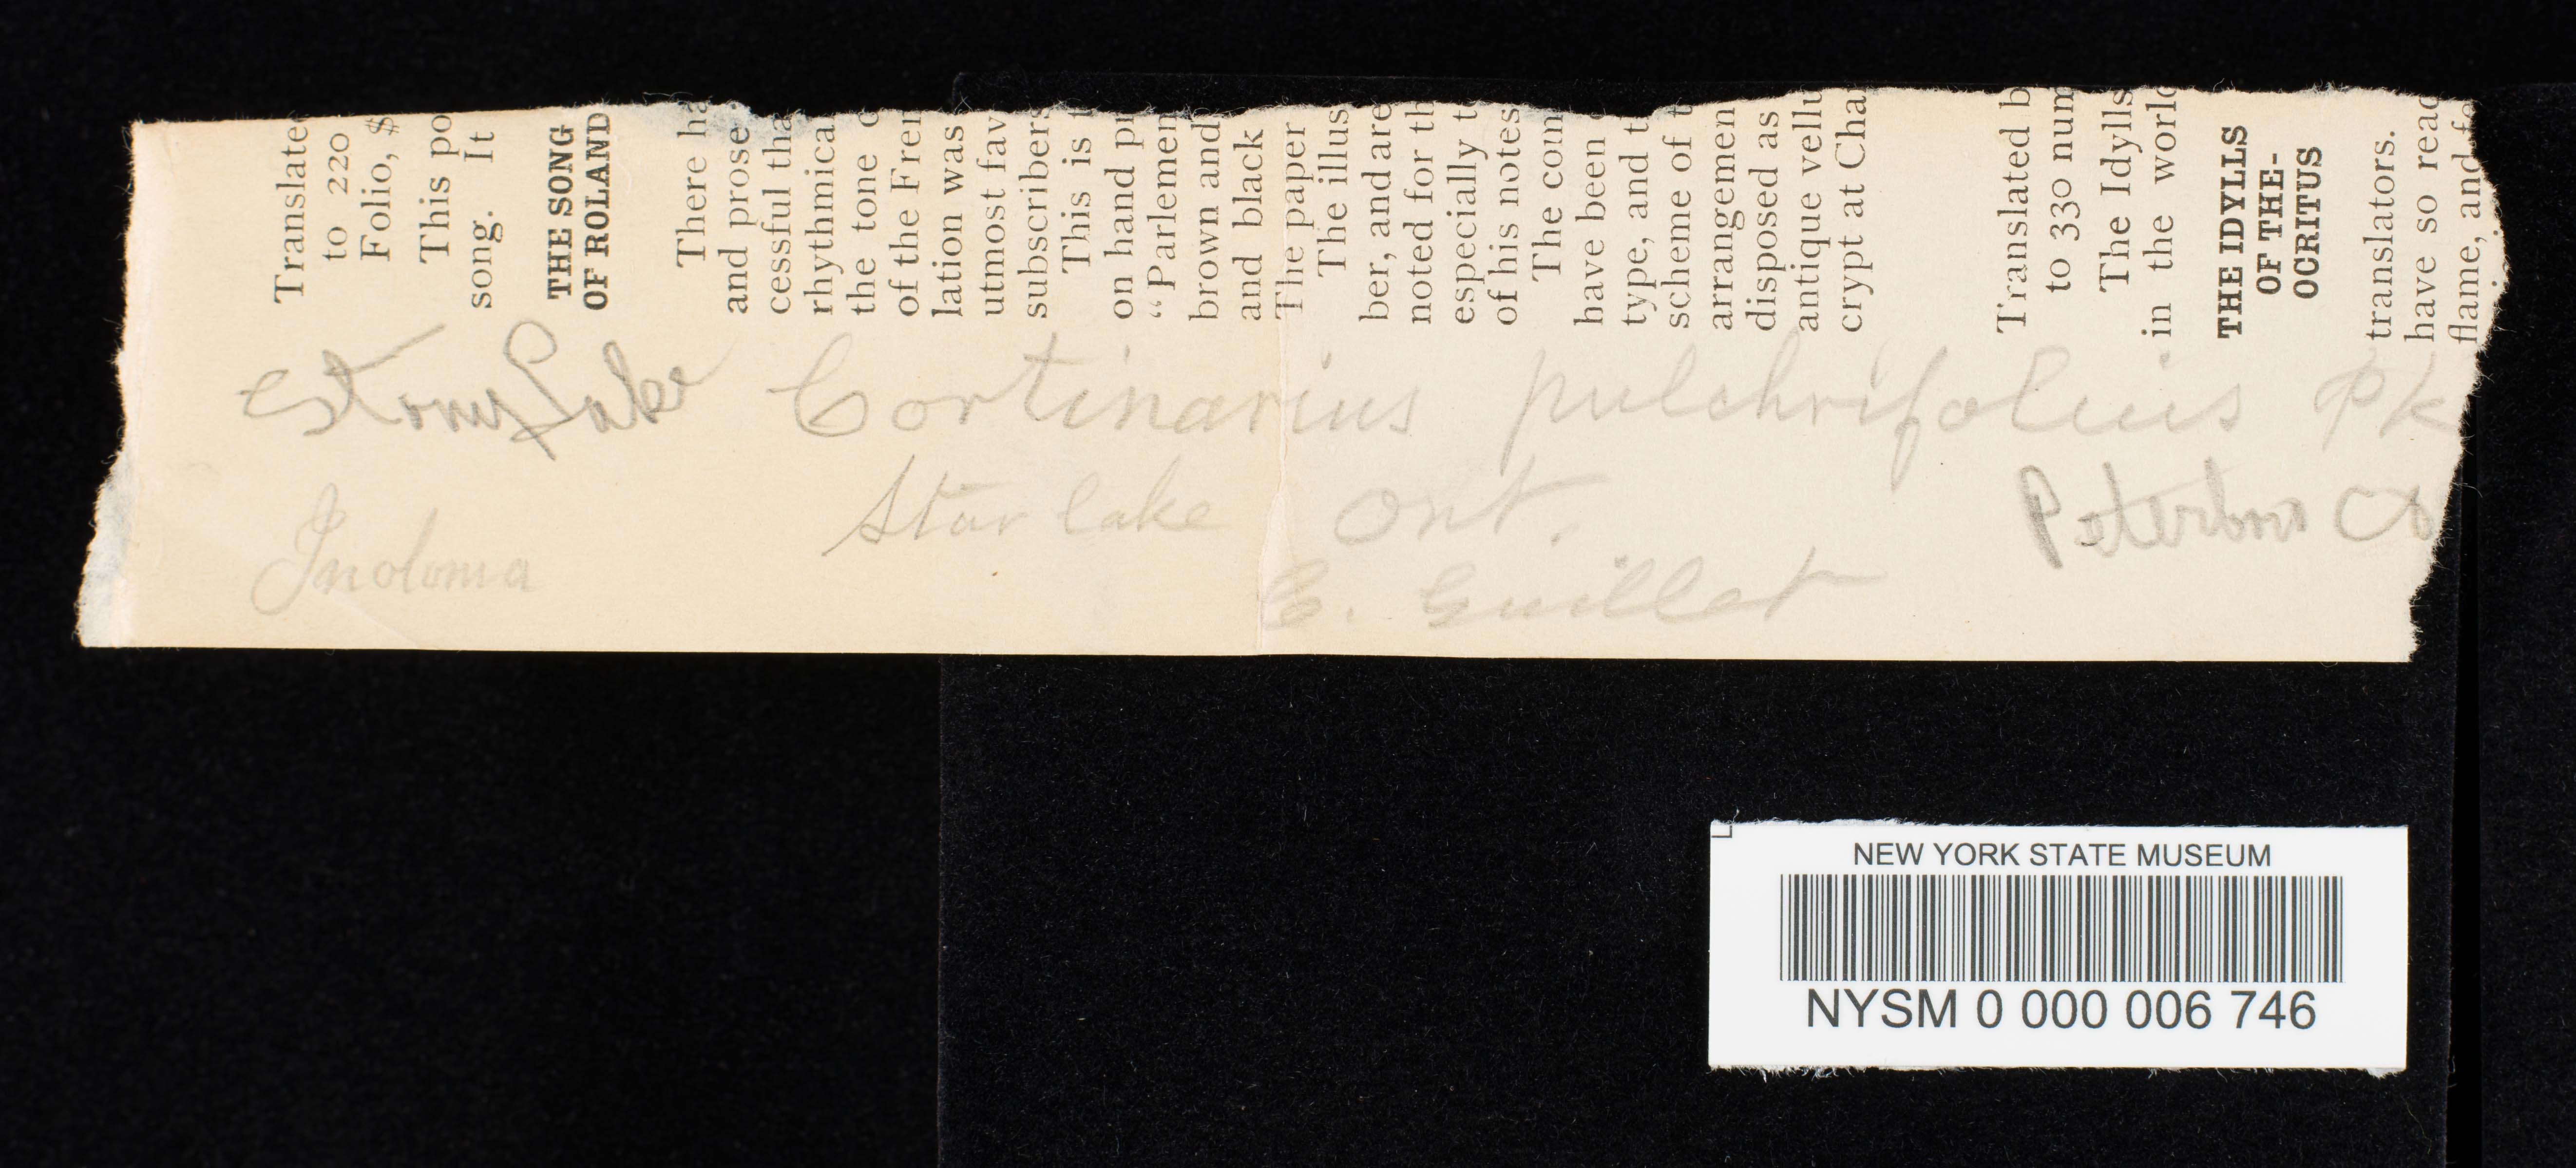 Translate
to 220
Folio, $
This po
song. It
THE SONG
OF ROLAND
There ha
and prose.
cessful tha
rhythmical
the tone o
of the Fren
lation was
utmost fav
subscribers
This is t
on hand pr
“Parlemen
brown and
and black
The paper
The illus
ber, and are
noted for th
especially t
of his notes
The coun
have been
type, and t
scheme of t
arrangemen
disposed as
antique vellu
crypt at Cha
Translated b
to 330 num
The Idylls
in the world
THE IDYLLS
OF THE-
OCRITUS
translators.
have so read
flame, and fa
Stony Lake Cortinarius pulchrifolius Pk
Star lake Ont. Peterboro Co
Inoloma
E. Guillet
NEW YORK STATE MUSEUM
NYSM 0 000 006 746